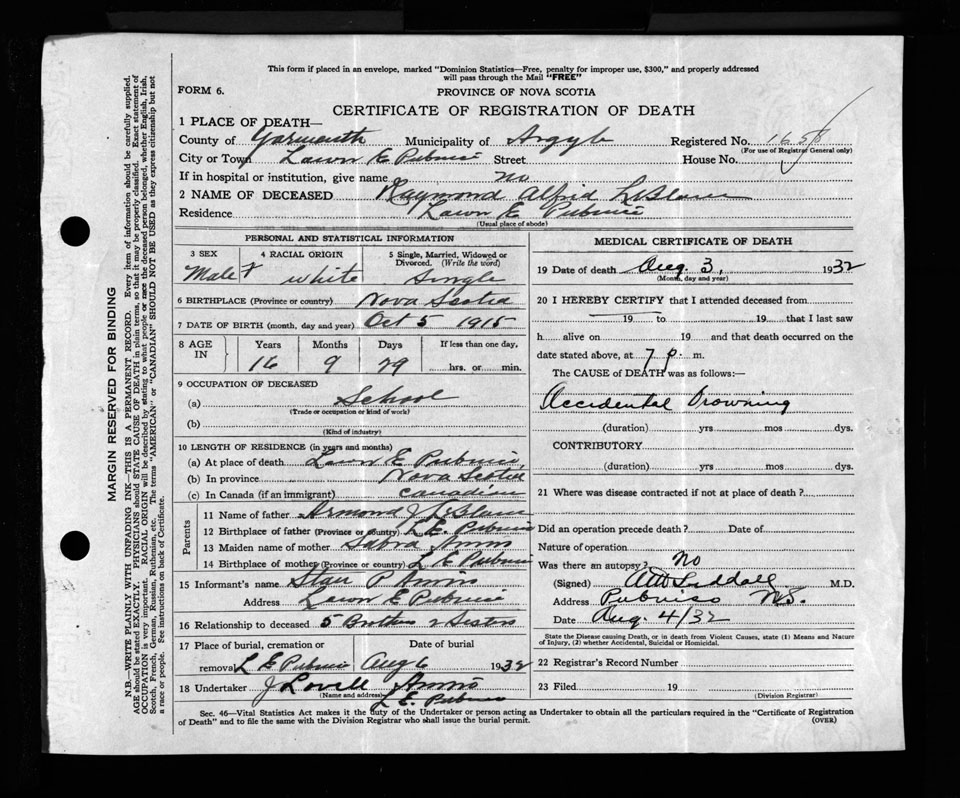 This form if placed in an envelope, marked "Dominion Statistics—Free, penalty for improper use, $300," and properly addressed
will pass through the Mail "FREE"
FORM 6.
PROVINCE OF NOVA SCOTIA
CERTIFICATE OF REGISTRATION OF DEATH
1 PLACE OF DEATH—
County of Yarmouth Municipality of Argyle Registered No. 1658
(For use of Registrar General only)
City or Town Lower E Pubnico Street House No.
If in hospital or institution, give name no
2 NAME OF DECEASED Raymond Alfrid LeBlanc
Residence Lower E Pubnico
(Usual place of abode)
PERSONAL AND STATISTICAL INFORMATION
3 SEX 4 RACIAL ORIGIN 5 Single, Married, Widowed or
Divorced. (Write the word)
Male white Single
6 BIRTHPLACE (Province or country) Nova Scotia
7 DATE OF BIRTH (month, day and year) Oct 5 1915
8 AGE IN Years Months Days If less than one day,
16 9 29 hrs. or min.
9 OCCUPATION OF DECEASED
(a) School
(Trade or occupation or kind of work)
(b)
(Kind of industry)
10 LENGTH OF RESIDENCE (in years and months)
(a) At place of death Lower E Pubnico,
(b) In province Nova Scotia
(c) In Canada (if an immigrant) Canadian
Parents
11 Name of father Armond J LeBlanc
12 Birthplace of father (Province or country) L E. Pubnico
13 Maiden name of mother Sabra Amiro
14 Birthplace of mother (Province or country) L E Pubnico
15 Informant's name P Amiro
Address Lower E Pubnico
16 Relationship to deceased 5 Brothers Sisters
17 Place of burial, cremation or Date of burial
removal L E Pubnico Aug 6 1932
18 Undertaker J Lovell Amiro
(Name and address)
L E. Pubnico
MEDICAL CERTIFICATE OF DEATH
19 Date of death Aug. 3, 1932
(Month, day and year)
20 I HEREBY CERTIFY that I attended deceased from
19 to 19 that I last saw
h alive on 19 and that death occurred on the
date stated above, at 7 p. m.
The CAUSE of DEATH was as follows:—
Accidental Drowning
(duration) yrs mos dys.
CONTRIBUTORY
(duration) yrs mos dys.
21 Where was disease contracted if not at place of death?
Did an operation precede death? Date of
Nature of operation
Was there an autopsy? No
(Signed) Liddall M.D.
Address Pubnico N.S.
Date Aug. 4/32
State the Disease causing Death, or in death from Violent Causes, state (1) Means and Nature
of Injury, (2) whether Accidental, Suicidal or Homicidal.
22 Registrar's Record Number
23 Filed 19
(Division Registrar)
Sec. 46—Vital Statistics Act makes it the duty of the Undertaker or person acting as Undertaker to obtain all the particulars required in the "Certificate of Registration
of Death" and to file the same with the Division Registrar who shall issue the burial permit.
(OVER)
MARGIN RESERVED FOR BINDING
N.B.—WRITE PLAINLY WITH UNFADING INK—THIS IS A PERMANENT RECORD. Every item of information should be carefully supplied.
AGE should be stated EXACTLY. PHYSICIANS should STATE CAUSE OF DEATH in plain terms, so that it may be properly classified. Exact statement of
OCCUPATION is very important. RACIAL ORIGIN will be described by stating to what people or race the deceased person belonged, whether English, Irish,
Scotch, French, German, Russian, Ruthenian, etc. The terms "AMERICAN" or "CANADIAN" SHOULD NOT BE USED as they express citizenship but not
a race or people. See instructions on back of Certificate.